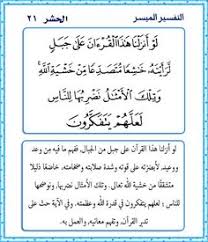 التفسير الميسر
الحشر ٢١
لَوْ أَنزَلْنَا هَٰذَا ٱلْقُرْءَانَ عَلَىٰ جَبَلٍ
لَّرَأَيْتَهُۥ خَٰشِعًا مُّتَصَدِّعًا مِّنْ خَشْيَةِ ٱللَّهِ ۚ
وَتِلْكَ ٱلْأَمْثَٰلُ نَضْرِبُهَا لِلنَّاسِ
لَعَلَّهُمْ يَتَفَكَّرُونَ
لو أنزلنا هذا القرآن على جبل من الجبال، ففهم ما فيه مِن وعد
ووعيد، لأبصَرْته على قوته وشدة صلابته وضخامته، خاضعًا ذليلا
متشققًا من خشية الله تعالى. وتلك الأمثال نضربها، ونوضحها
للناس ؛ لعلهم يتفكرون في قدرة الله وعظمته. وفي الآية حث على
تدبر القرآن، وتفهم معانيه، والعمل به.